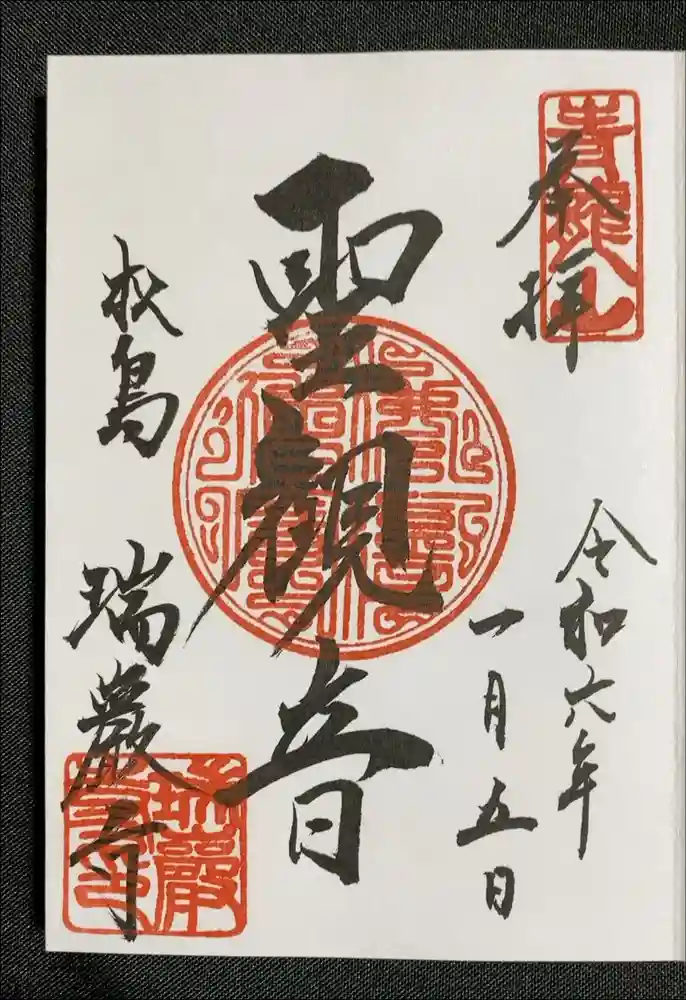 奉拝
青龍山
令和六年
一月五日
聖観音
松島
瑞巌寺